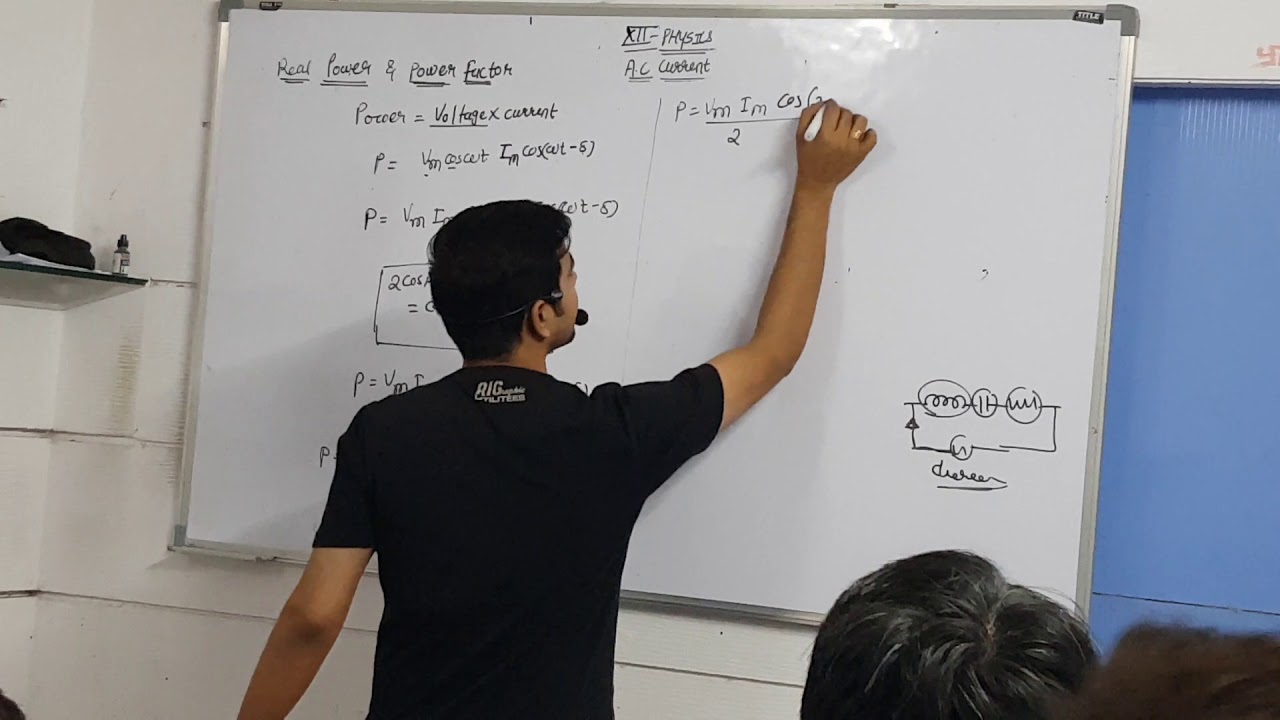 XII-PHYSICS
A.C Current
Real Power & Power factor
Power = Voltage x current
P = Vm cosωt Im cos(ωt-δ)
P = Vm I
ωt-δ)
2cosA
= c
P = Vm I
δ)
P =
P = Vm Im cos(2
2
AIG
UTILITIES
TITLE
TITLE